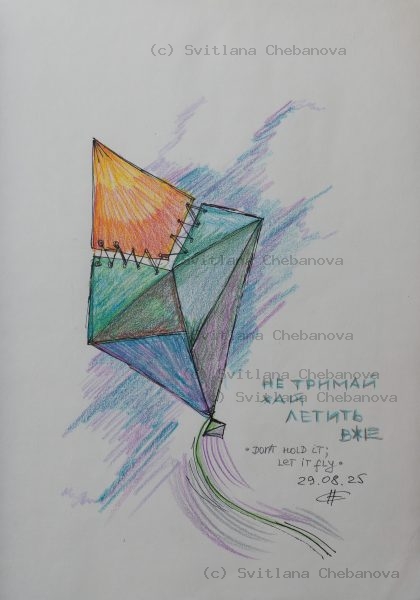 (c) Svitlana Chebanova
Svitlana Chebanova
Svitlana Chebanova
Svitlana Chebanova
Svitlana Chebanova
НЕ ТРИМАЙ
ХАЙ
ЛЕТИТЬ
ВЖЕ
"DON'T HOLD IT;
LET IT FLY"
29.08.25
(c) Svitlana Chebanova